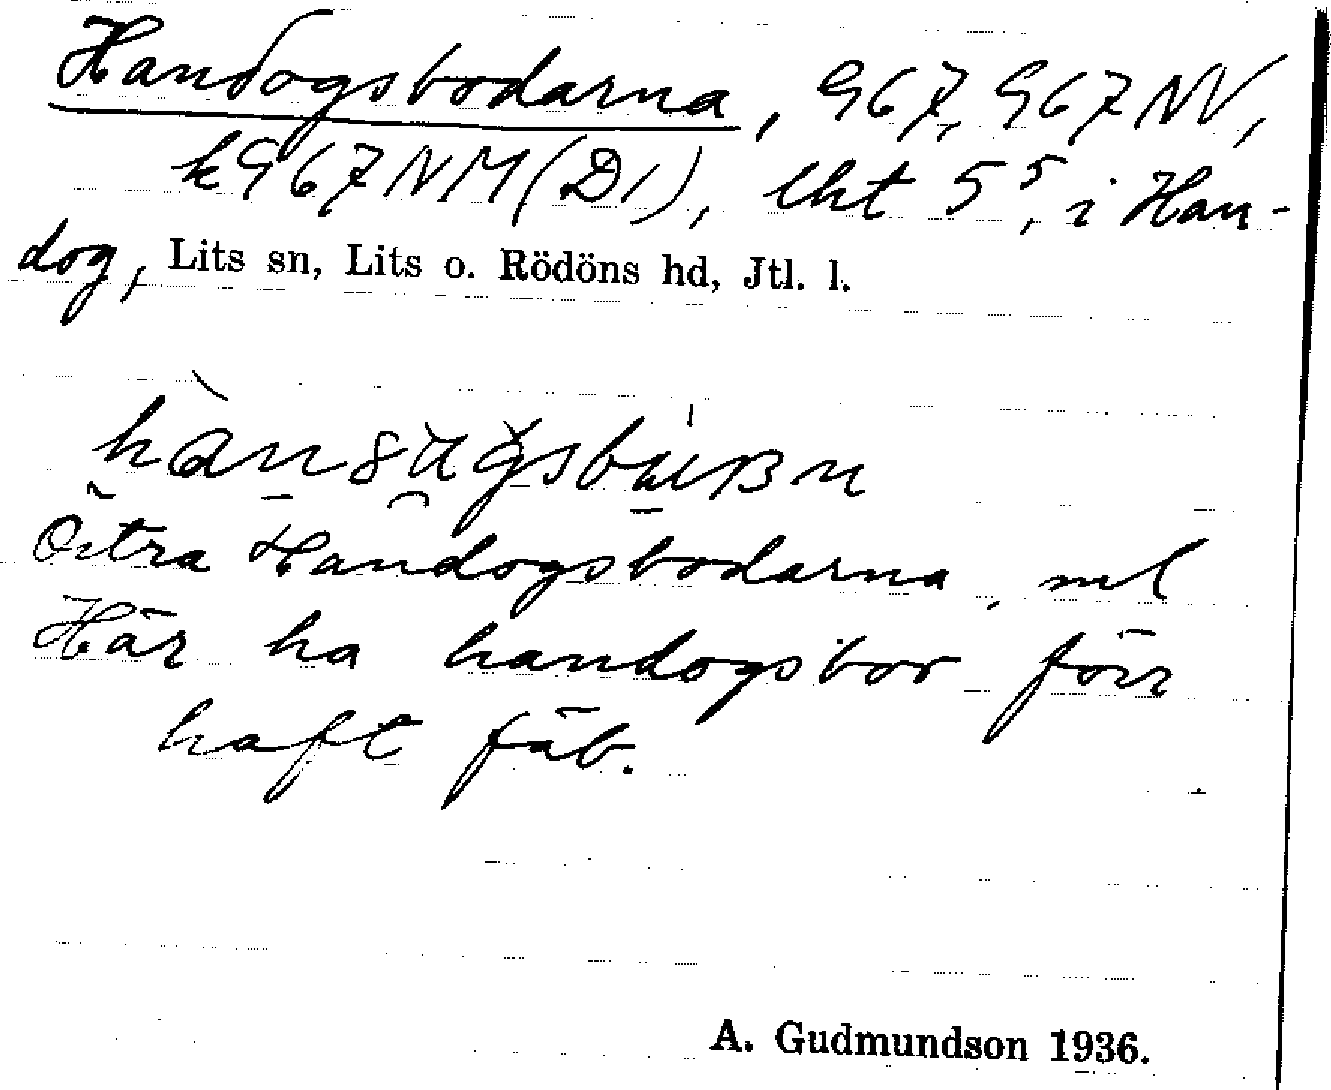 Handogsbodarna, 967, 967 NV,
k 967 NM (D1), lht 5⁵, i Han-
dog, Lits sn, Lits o. Rödöns hd, Jtl. l.
Östra Handogsbodarna, sml
Här ha handogsbor förr
haft fäb.
A. Gudmundson 1936.